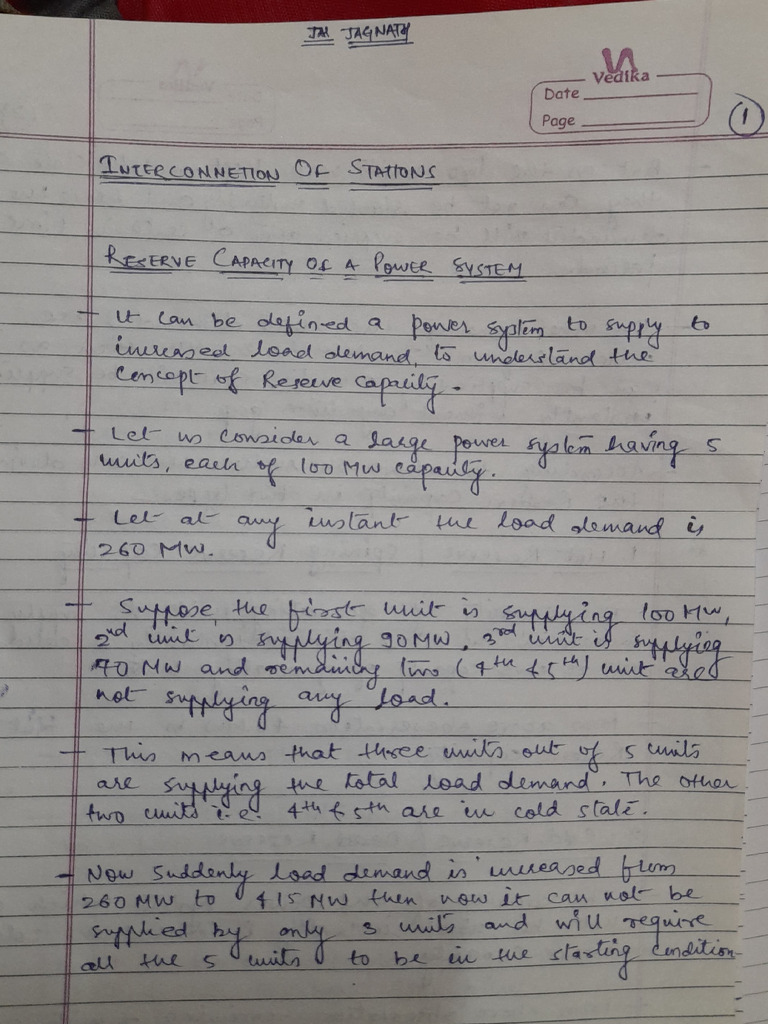 JAI JAGNATH
Vedika
Date
Page
1
INTERCONNETION OF STATIONS
RESERVE CAPACITY OF A POWER SYSTEM
- It can be defined a power system to supply to
increased load demand, to understand the
Concept of Reserve capacity.
- Let us consider a large power system having 5
units, each of 100 MW capacity.
- Let at any instant the load demand is
260 MW.
- Suppose, the first unit is supplying 100 MW,
2nd unit is supplying 90 MW, 3rd unit is supplying
70 MW and remaining two (4th & 5th) unit are
not supplying any load.
- This means that three units out of 5 units
are supplying the total load demand. The other
two units i.e. 4th & 5th are in cold state.
- Now suddenly load demand is increased from
260 MW to 415 MW then now it can not be
supplied by only 3 units and will require
all the 5 units to be in the starting condition-